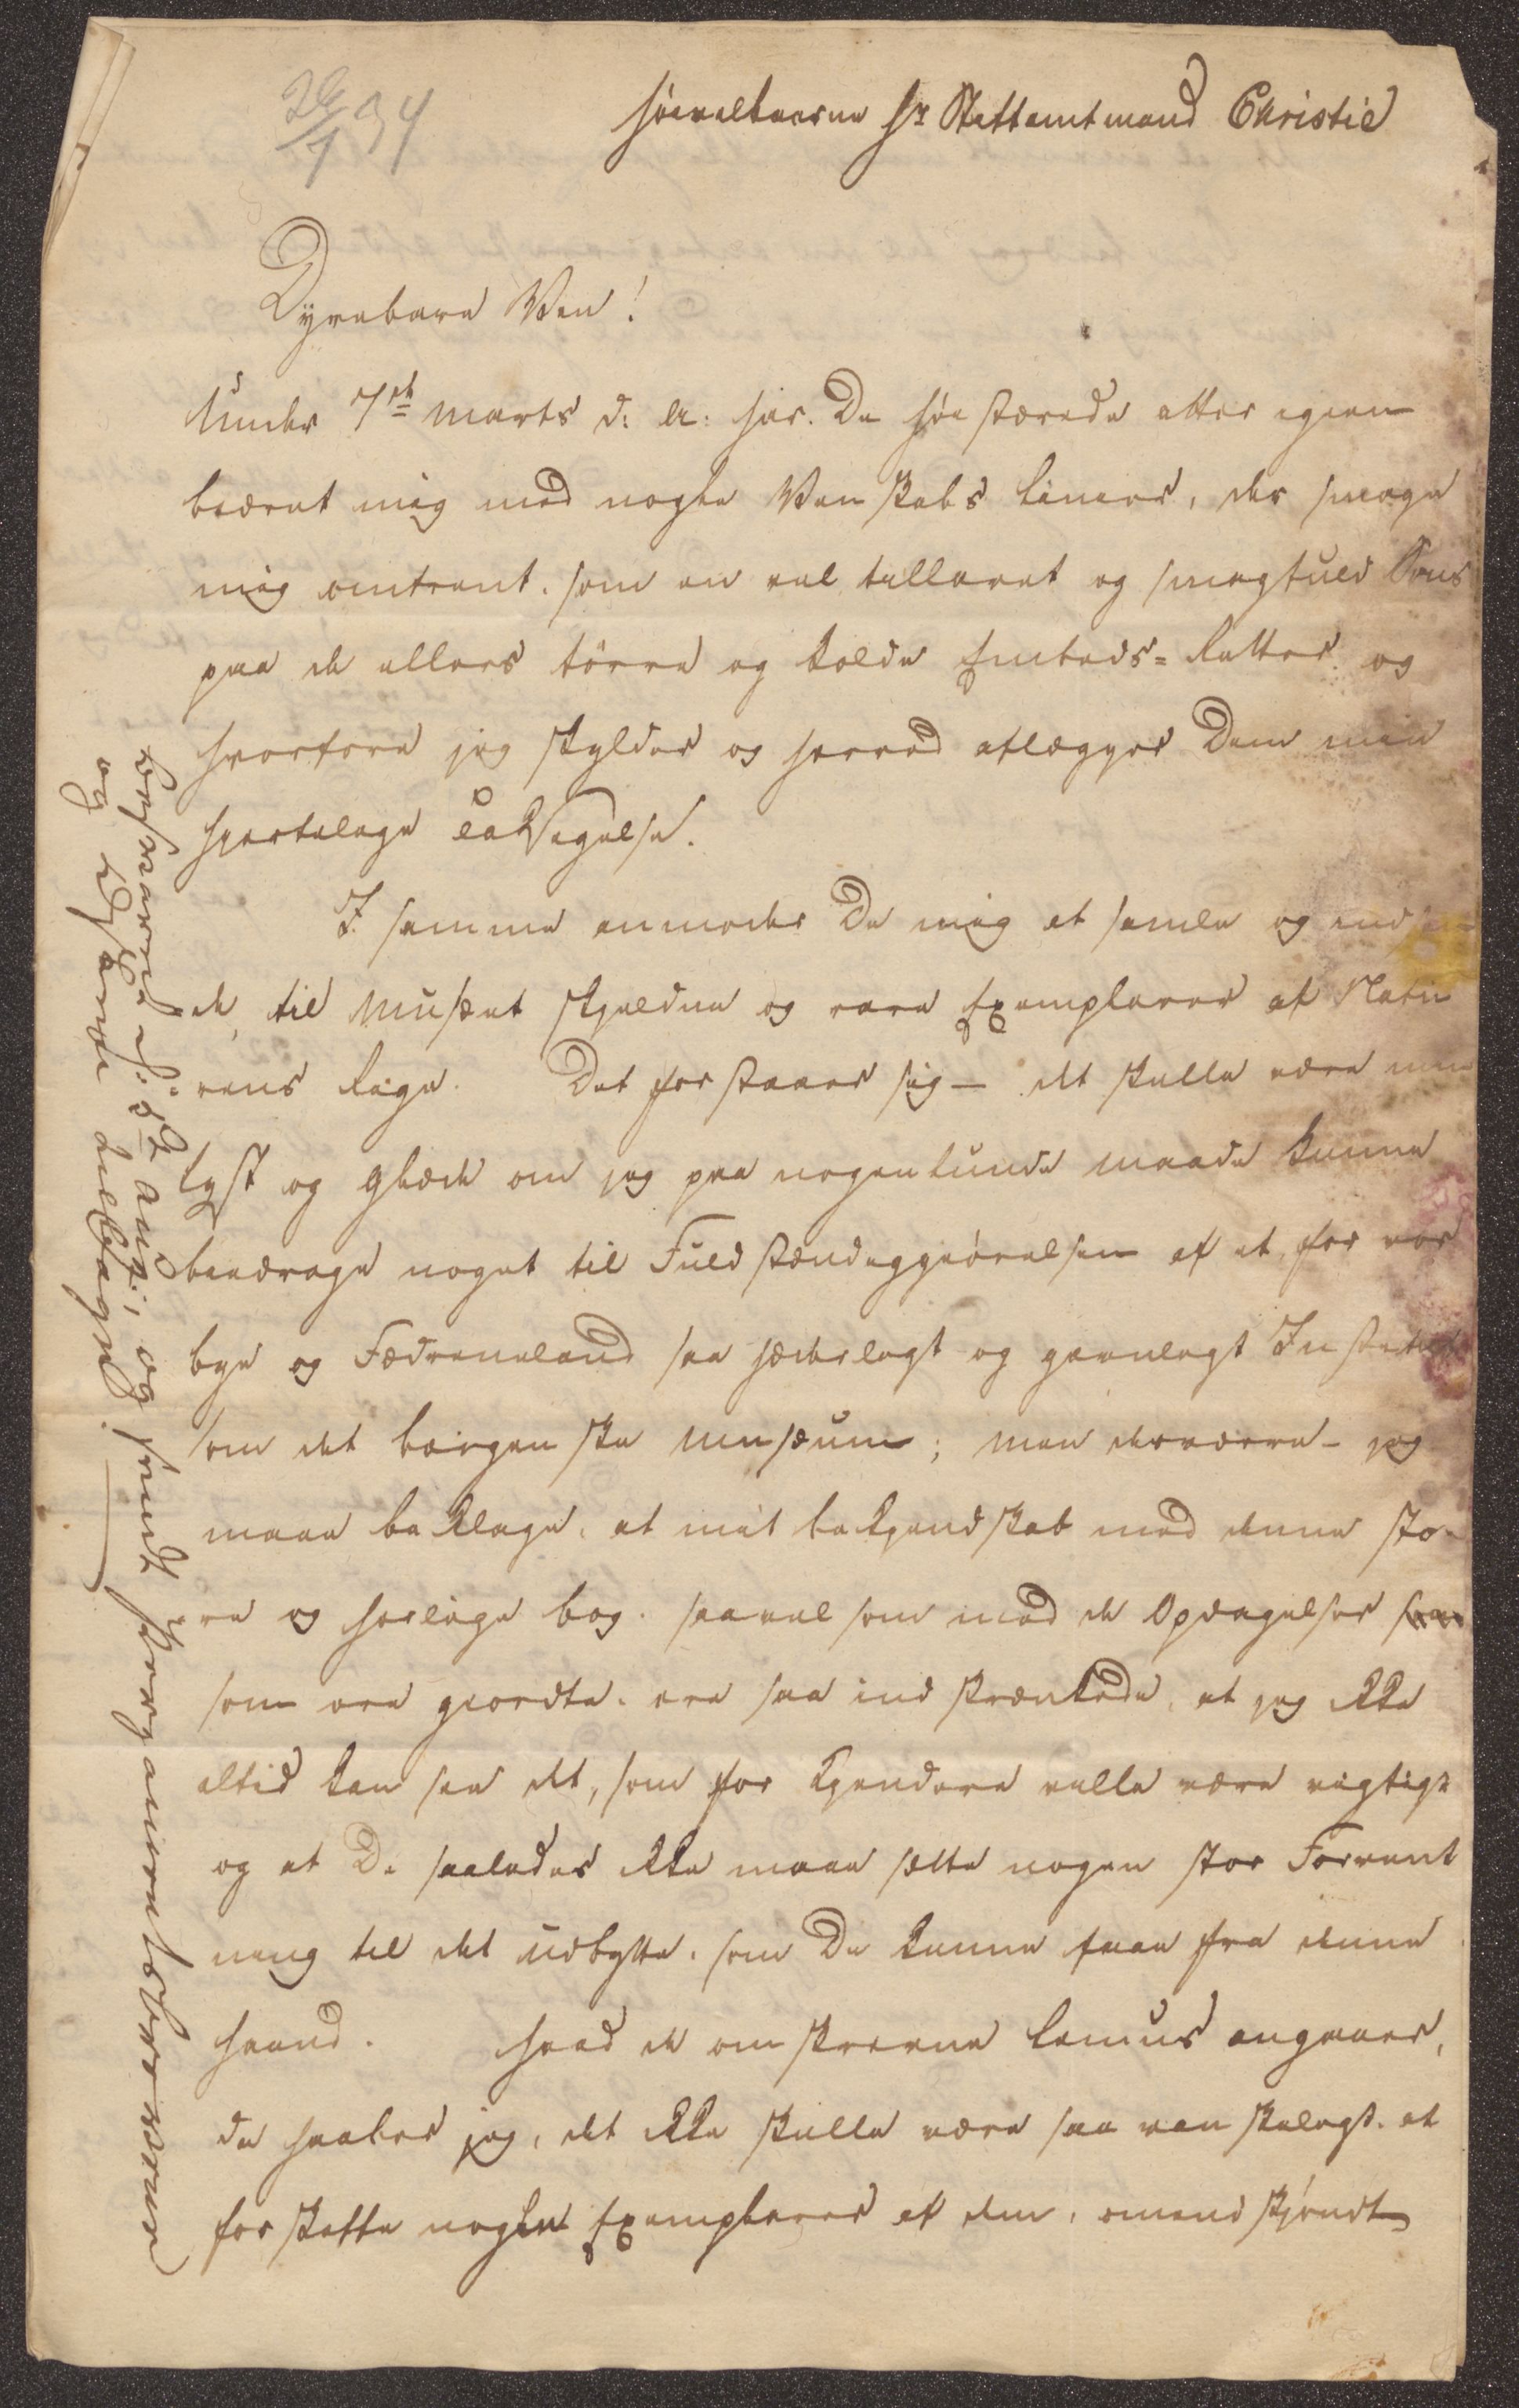 26/4 34
Høivelbaarne Hr Stiftamtmand Christie
Dyrebare Ven!
Under 7de Marts d: A: har De høistærede atter igien
beæret mig med nogle Venskabs Linier, der smage
mig omtrent som en vel tillavet og smagfuld Sous
paa de ellers tørre og kolde Embeds-Retter og
hvorfore jeg skylder og herved aflægger Dem min
hiertelige Taksigelse.
I samme anmoder De mig at samle og indsen-
de til Musæet skjeldne og rare Exemplarer af Natu
rens Rige. Det forstaaer sig — det skulle være min
Lyst og Glæde om jeg paa nogenlunde Maade kunne
beedrage noget til Fuldstændiggiørelsen af et for vor
Bye og Fædreneland saa hæderligt og gavnligt Institut
som det bergenske Musæum; men desværre – jeg
maae beklage, at mit bekjendskab med denne sto-
re og herlige bog, saavel som med de Opdagelser
som ere giordte, ere saa indskrænkede, at jeg ikke
altid kan see det, som for Kjendere ville være vigtigt
og at De saaledes ikke maae sætte nogen stor Forvent
ning til det Udbytte, som De kunne faae fra denne
Haand. Hvad de omskrevne Lemus angaaer,
da haaber jeg, det ikke skulle være saa vanskeligt at
forskaffe nogle Exemplarer af dem, omendskjøndt
besvaret d: 2 Aug:, og sendt
og